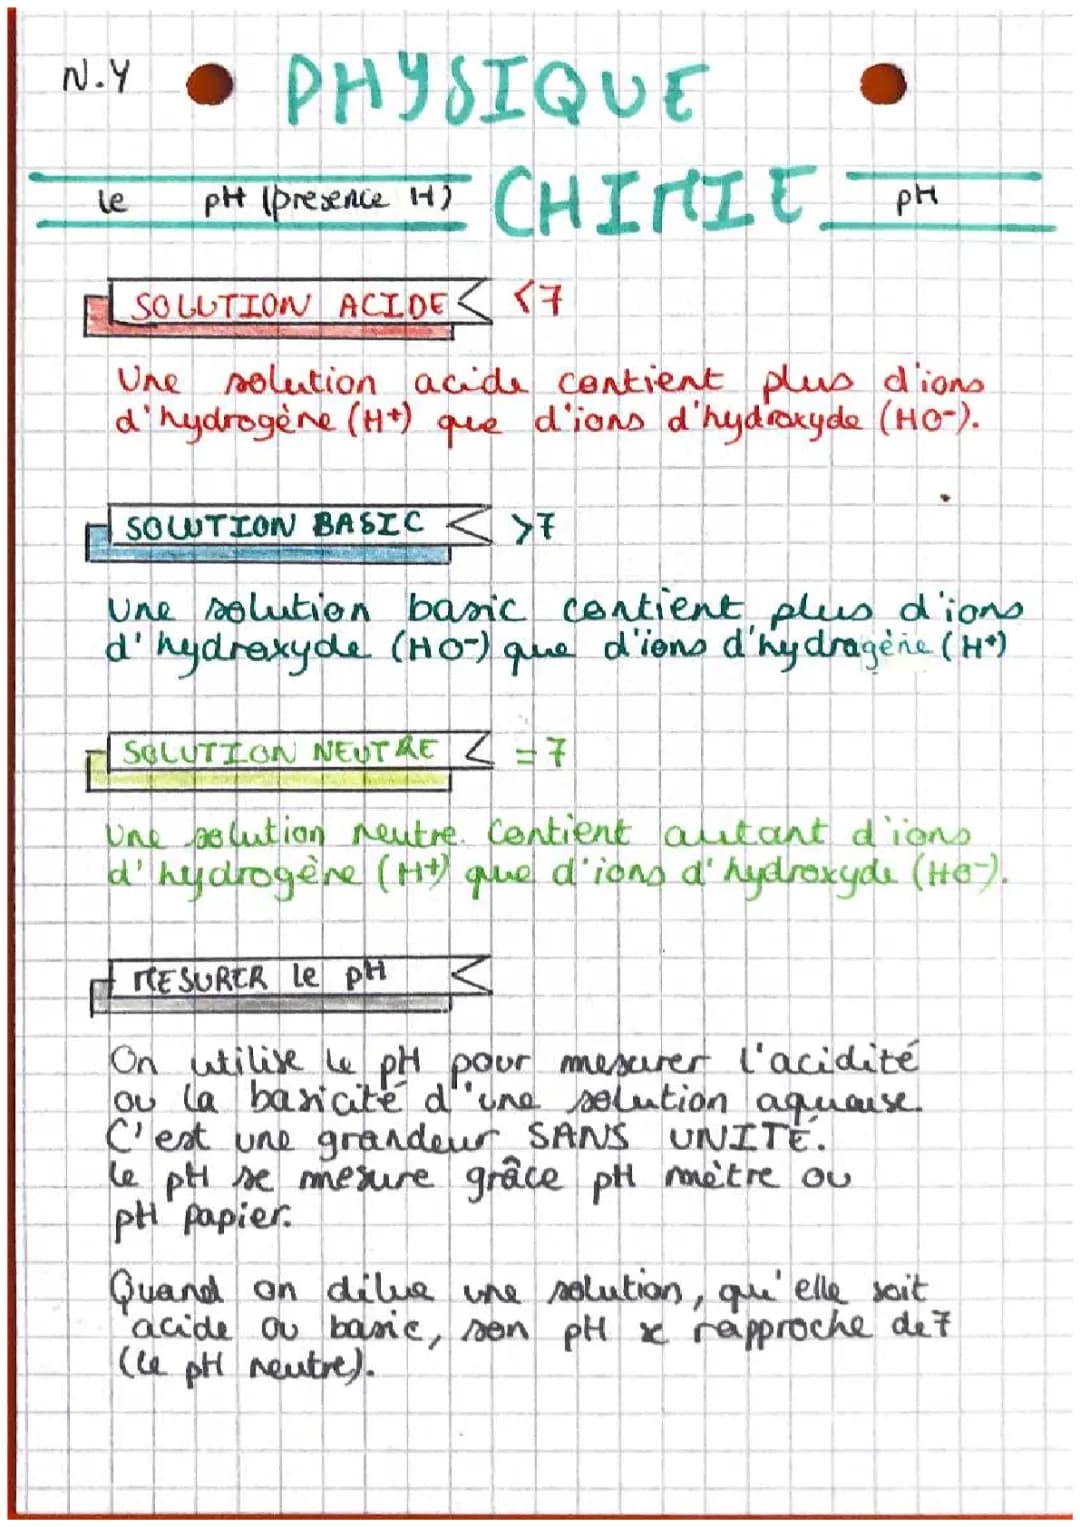 N.Y PHYSIQUE
le pH (presence H) CHIMIE pH
SOLUTION ACIDE <7
Une solution acide contient plus d'ions
d'hydrogène (H+) que d'ions d'hydroxyde (HO-).
SOLUTION BASIC >7
Une solution basic contient plus d'ions
d'hydroxyde (HO-) que d'ions d'hydrogène (H+)
SOLUTION NEUTRE =7
Une solution neutre. Contient autant d'ions
d'hydrogène (H+) que d'ions d'hydroxyde (HO-).
MESURER le pH
On utilise le pH pour mesurer l'acidité
ou la basicité d'une solution aqueuse.
C'est une grandeur SANS UNITÉ.
le pH se mesure grâce pH mètre ou
pH papier.
Quand on dilue une solution, qu'elle soit
acide ou basic, son pH se rapproche de 7
(le pH neutre).